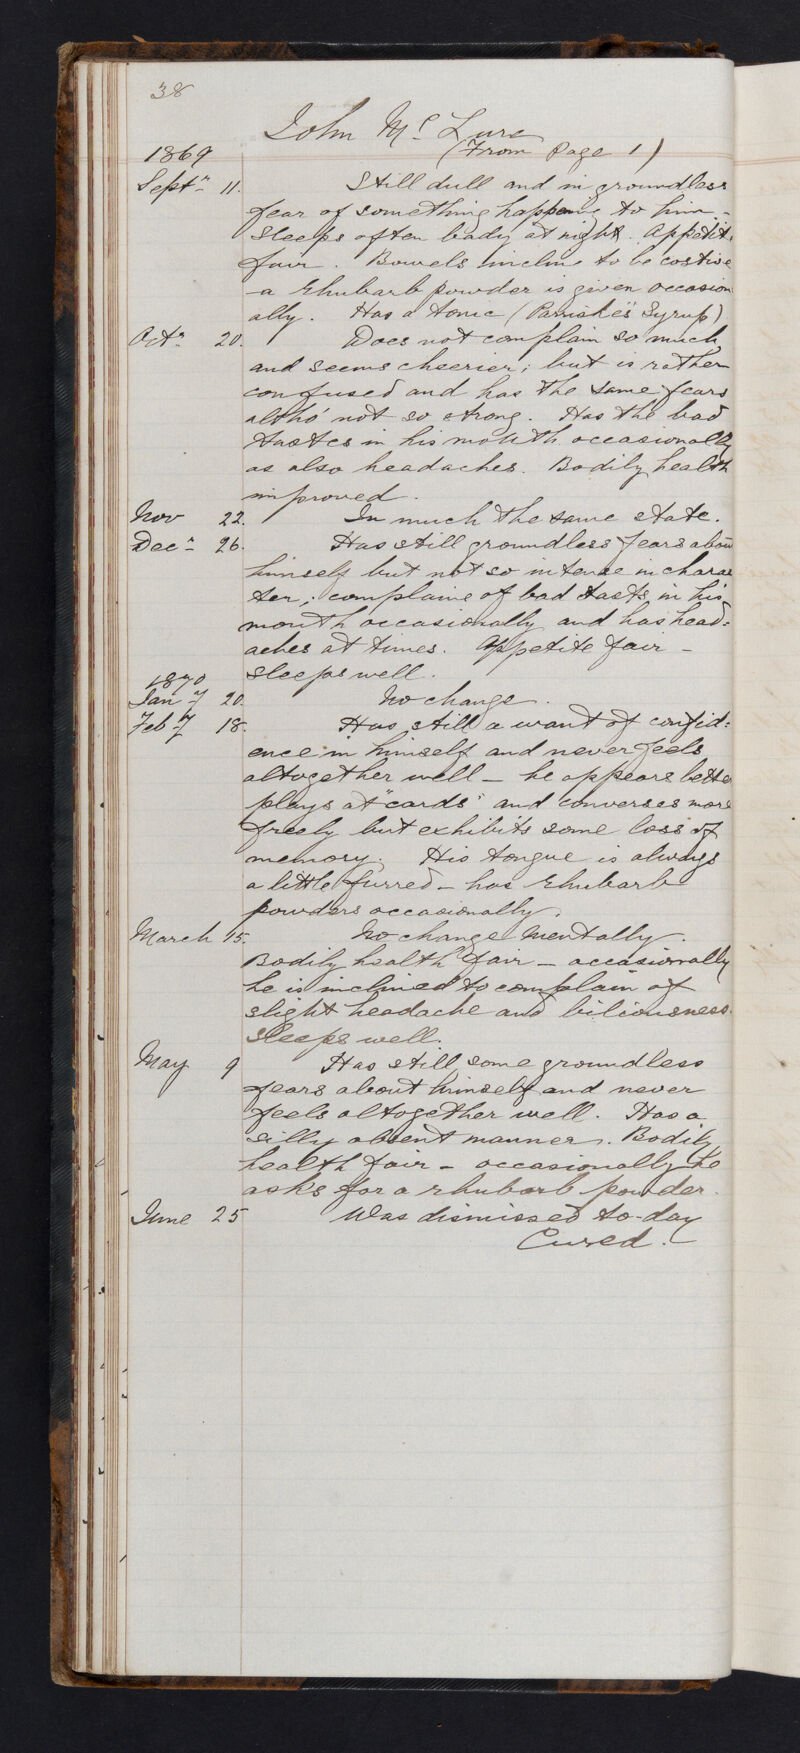 38
John Mc Lure
1869 (From page 1)
Septr 11. Still dull and in groundless
fear of something happening to him -
Sleeps often badly at night. Appetite
fair. Bowels incline to be costive
- a rhubarb powder is given occasion
ally. Has a tonic (Parrishes Syrup)
Octr 20. Does not complain so much
and seems cheerier; but is rather
confused and has the same fears
altho' not so strong. Has the bad
tastes in his mouth occasionally
as also headaches. Bodily health
improved.
Nov 22. In much the same state.
Decr 26. Has still groundless fears about
himself but not so intense in charac
ter; complains of bad tastes in his
mouth occasionally and has head=
aches at times. Appetite fair -
1870 Sleeps well.
Jany 20. No change.
Feby 18. Has still a want of confid=
ence in himself and never feels
altogether well - he appears better
plays at "cards" and converses more
freely but exhibits some loss of
memory. His tongue is always
a little furred - has rhubarb
powders occasionally.
March 15. No change mentally.
Bodily health fair - occasionally
he is inclined to complain of
slight headache and biliousness.
Sleeps well.
May 9 Has still some groundless
fears about himself and never
feels altogether well. Has a
silly absent manner. Bodily
health fair - occasionally he
asks for a rhubarb powder.
June 25 Was dismissed to-day
Cured. -